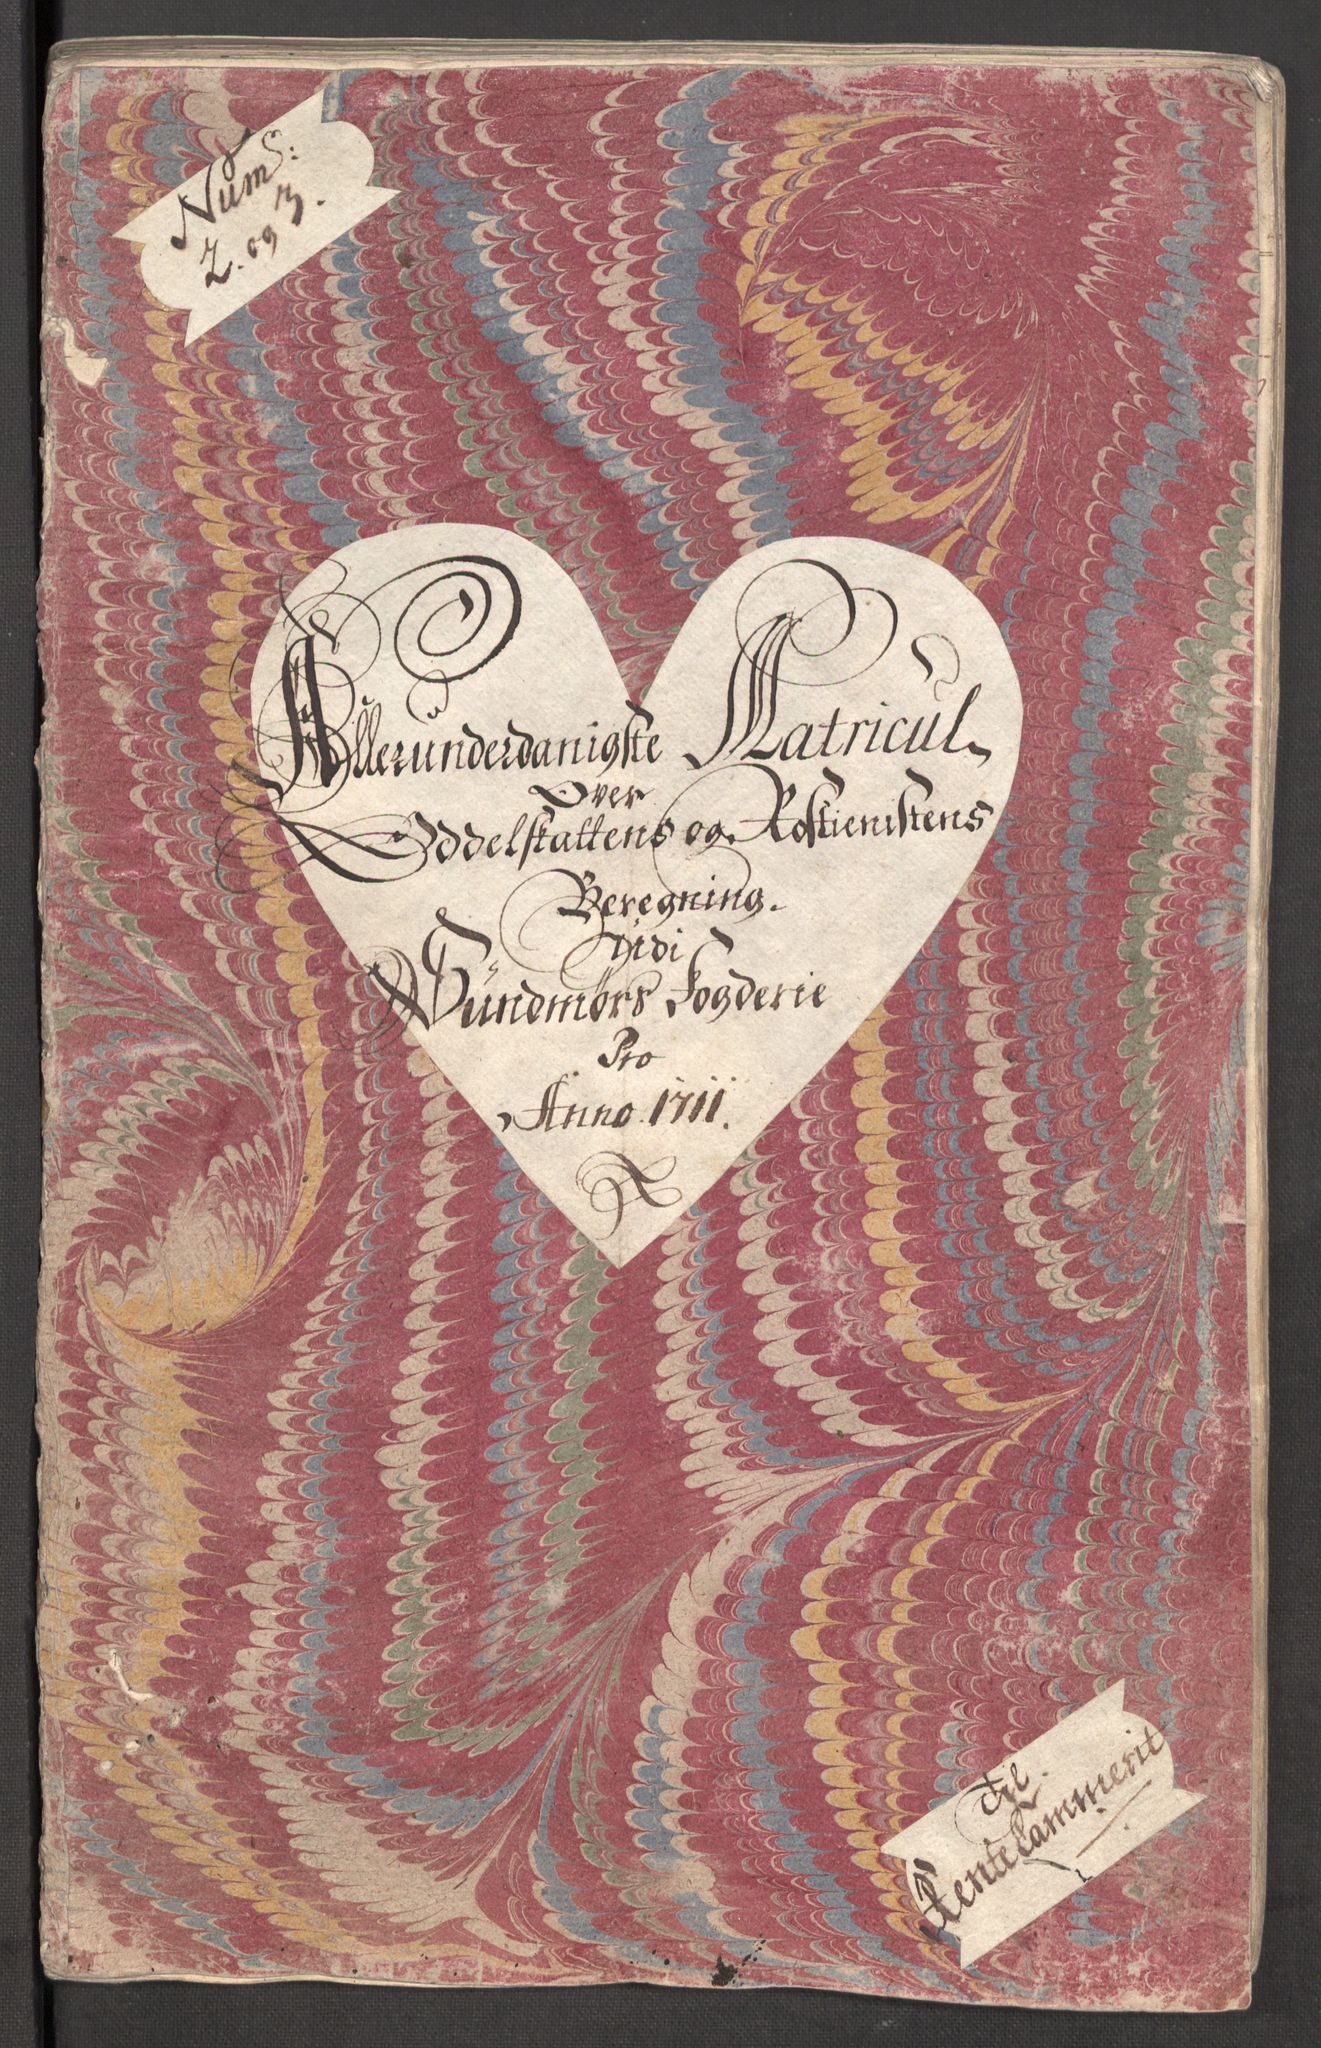 Num:
2. og 3.
Allerunderdanigste Matricul
Over
Oddelskattens og Rostienistens
Beregning
Udi
Sundmørs Fogderie
Pro
Anno 1711.
Til
Rentekammerit